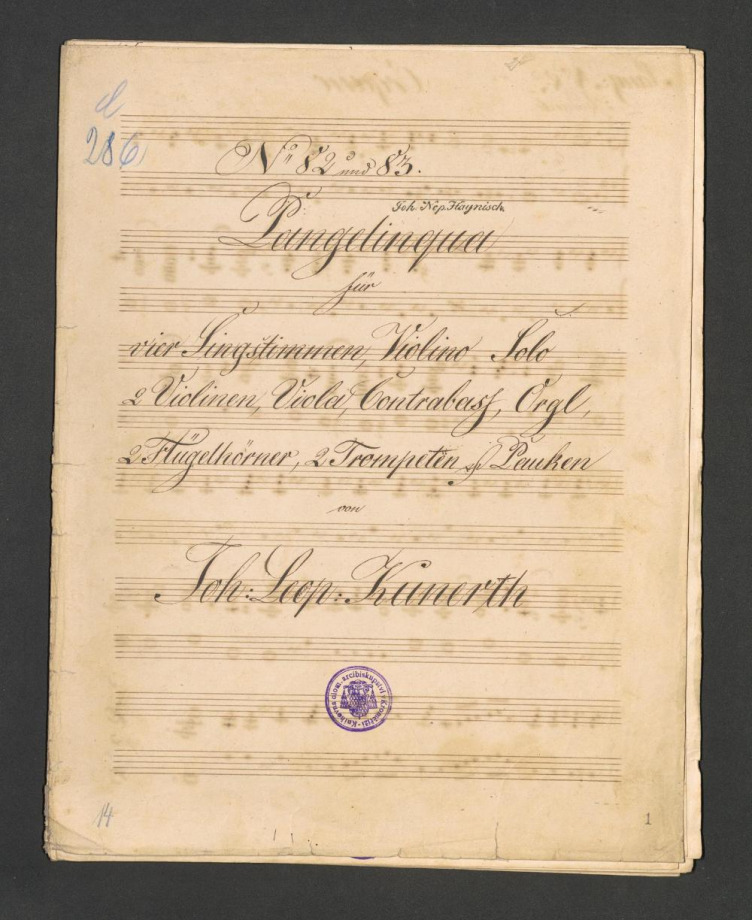 d
286
No 82 und 83.
Joh. Nep. Haynisch
Pangelinqua
für
vier Singstimmen, Violino Solo
2 Violinen, Viola, Contrabass, Orgl,
2 Flügelhörner, 2 Trompeten & Pauken
von
Joh: Leop: Kunerth
Knihovna olom. arcibiskupství v Kroměříži
14
1